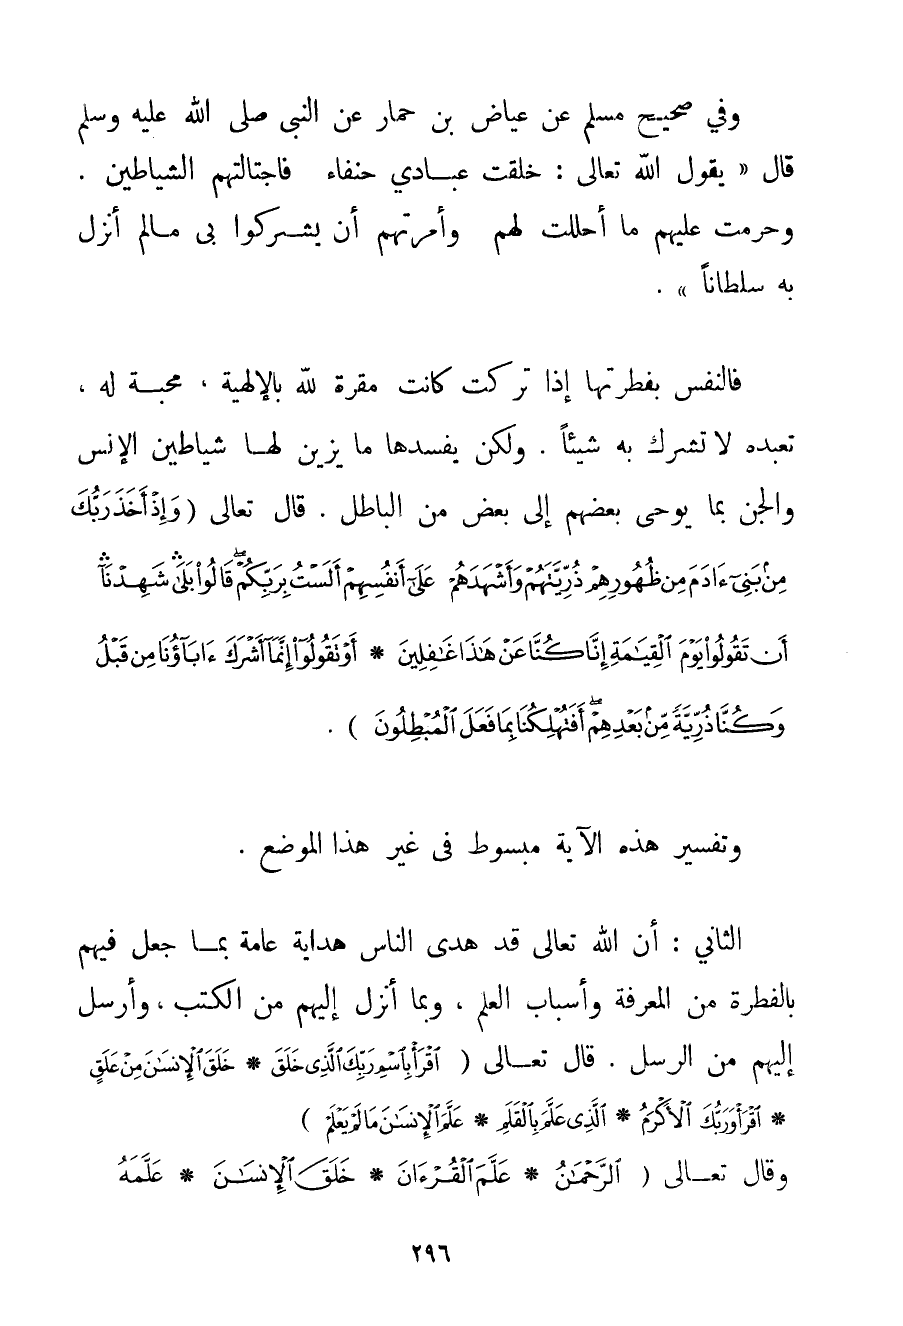 وفي صحيح مسلم عن عياض بن حمار عن النبى صلى الله عليه وسلم
قال « يقول الله تعالى : خلقت عبادي حنفاء فاجتالتهم الشياطين .
وحرمت عليهم ما أحللت لهم وأمرتهم أن يشركوا بى مالم أنزل
به سلطاناً » .
فالنفس بفطرتها إذا تركت كانت مقرة لله بالإلهية ، محبة له ،
تعبده لا تشرك به شيئاً . ولكن يفسدها ما يزين لها شياطين الإنس
والجن بما يوحى بعضهم إلى بعض من الباطل . قال تعالى ( وَإِذْ أَخَذَ رَبُّكَ
مِنۢ بَنِىٓ ءَادَمَ مِن ظُهُورِهِمْ ذُرِّيَّتَهُمْ وَأَشْهَدَهُمْ عَلَىٰٓ أَنفُسِهِمْ أَلَسْتُ بِرَبِّكُمْ ۖ قَالُوا۟ بَلَىٰ ۛ شَهِدْنَآ ۛ
أَن تَقُولُوا۟ يَوْمَ ٱلْقِيَٰمَةِ إِنَّا كُنَّا عَنْ هَٰذَا غَٰفِلِينَ * أَوْ تَقُولُوٓا۟ إِنَّمَآ أَشْرَكَ ءَابَآؤُنَا مِن قَبْلُ
وَكُنَّا ذُرِّيَّةً مِّنۢ بَعْدِهِمْ ۖ أَفَتُهْلِكُنَا بِمَا فَعَلَ ٱلْمُبْطِلُونَ ) .
وتفسير هذه الآية مبسوط فى غير هذا الموضع .
الثاني : أن الله تعالى قد هدى الناس هداية عامة بما جعل فيهم
بالفطرة من المعرفة وأسباب العلم ، وبما أنزل إليهم من الكتب ، وأرسل
إليهم من الرسل . قال تعالى ( ٱقْرَأْ بِٱسْمِ رَبِّكَ ٱلَّذِى خَلَقَ * خَلَقَ ٱلْإِنسَٰنَ مِنْ عَلَقٍ
* ٱقْرَأْ وَرَبُّكَ ٱلْأَكْرَمُ * ٱلَّذِى عَلَّمَ بِٱلْقَلَمِ * عَلَّمَ ٱلْإِنسَٰنَ مَا لَمْ يَعْلَمْ )
وقال تعالى ( ٱلرَّحْمَٰنُ * عَلَّمَ ٱلْقُرْءَانَ * خَلَقَ ٱلْإِنسَٰنَ * عَلَّمَهُ
٢٩٦